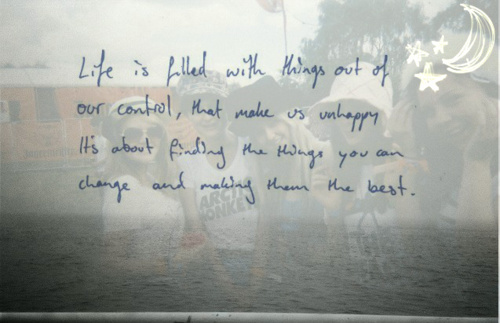 Life is filled with things out of
our control, that make us unhappy
It's about finding the things you can
change and making them the best.
ARCTIC
MONKEYS